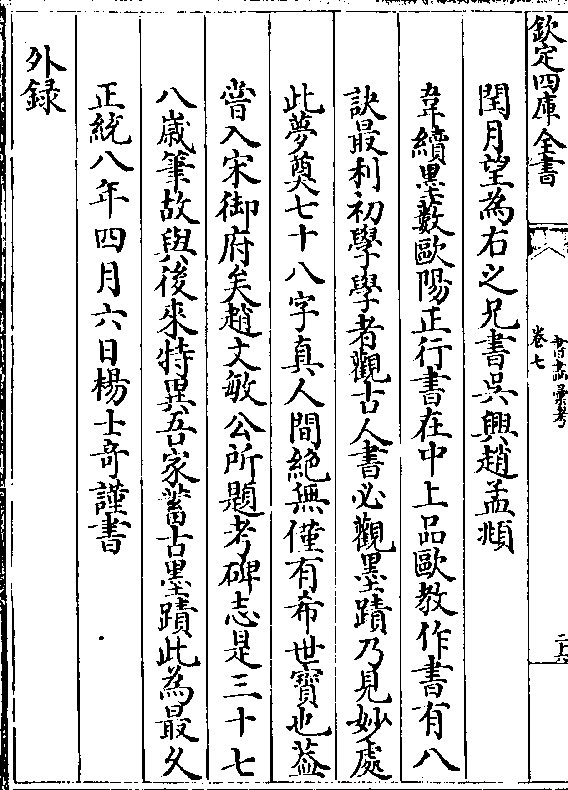 欽定四庫全書
書畫彙考
卷七
閏月望為右之兄書吳興趙孟頫
韋續墨藪歐陽正行書在中上品歐教作書有八
訣最利初學學者觀古人書必觀墨蹟乃見妙處
此夢奠七十八字真人間絶無僅有希世寶也葢
嘗入宋御府矣趙文敏公所題考碑志是三十七
八歲筆故與後來特異吾家蓄古墨蹟此為最乆
正統八年四月六日楊士奇謹書
外録